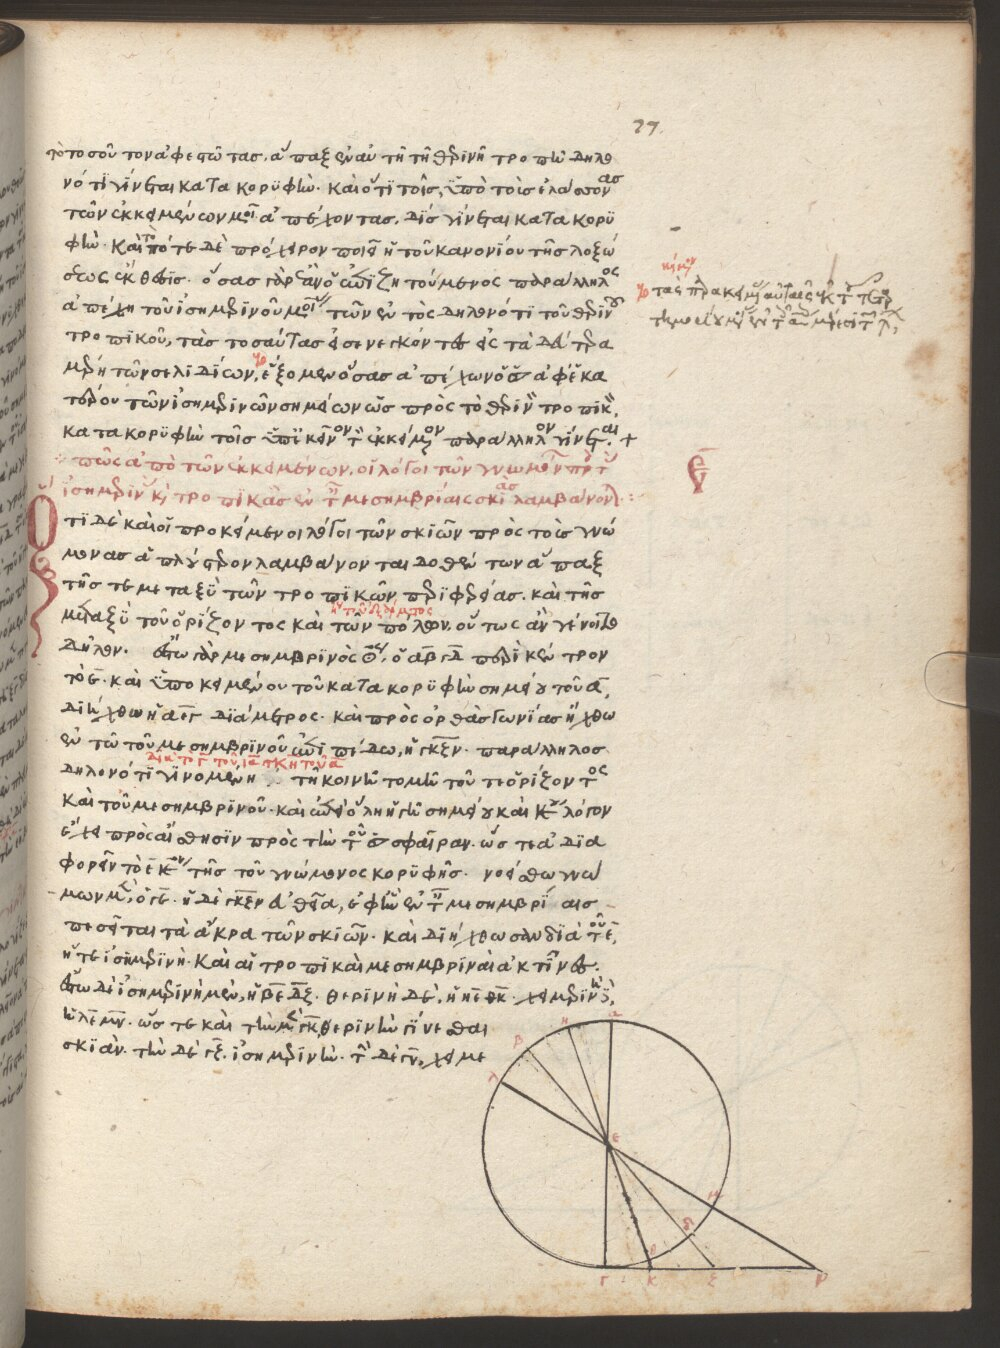 77
τὸ τοσοῦτον ἀφεστῶτας, ἅπαξ ἐν αὐτῆ τῆ θερινῆ τροπῆ δηλο
νότι γίνεται κατα κορυφὴν. καὶ ὅτι τοῖς, ὑπὸ τοὺς ἐλάσσονας
τῶν ἐκκειμένων μοι ἀπέχοντας, δὶς γίνεται κατα κορυ
φὴν. καὶ τὸ πότε δὲ πρόχειρον ποιεῖ ἡ τοῦ κανονίου τῆς λοξώ
σεως ἔκθεσις. ὅσας γὰρ ἂν ὁ ἐπιζητούμενος παράλληλος
ἀπέχη τοῦ ἰσημερινοῦ μοι τῶν ἐντὸς δηλονότι τοῦ θερινοῦ
τροπικοῦ, τὰς τοσαύτας εἰσενεγκόντες εἰς τὰ δεύτερα
μέρη τῶν σελιδίων, ἕξομεν ὅσας ἀπέχων ὁ ἀφ' ἑκα
τέρου τῶν ἰσημερινῶν σημείων ὡς πρὸς τὸ θερινὸν τροπικὸν,
κατα κορυφὴν τοῖς ὑπ' ἐκεῖνον τὸν ἐκκείμενον παράλληλον γίνεται +
πῶς ἀπὸ τῶν ἐκκειμένων, οἱ λόγοι τῶν γνωμόνων πρὸς τὰς
ἰσημερινὰς καὶ τροπικὰς ἐν ταῖς μεσημβρίαις σκιὰς λαμβάνονται :
Ὅτι δὲ καὶ οἱ προκείμενοι λόγοι τῶν σκιῶν πρὸς τοὺς γνώ
μονας ἁπλούστερον λαμβάνονται δοθέντων ἅπαξ
τῆς τε μεταξὺ τῶν τροπικῶν περιφερείας. καὶ τῆς
ἢ τοῦ ἐξάρματος
μεταξὺ τοῦ ὁρίζοντος καὶ τῶν πόλων, οὕτως ἂν γένοιτο
δῆλον. ἔστω γὰρ μεσημβρινὸς ὁ αβγδ περὶ κέντρον
τὸ ε. καὶ ὑποκειμένου τοῦ κατα κορυφὴν σημείου τοῦ α,
διήχθω ἡ αεγ διάμετρος. καὶ πρὸς ὀρθὰς γωνίας ἤχθω
ἐν τῶ τοῦ μεσημβρινοῦ ἐπιπέδω, ἡ γκξν. παράλληλος
δηλονότι γινομένη τῆ κοινῆ τομῆ τοῦ τε ὁρίζοντος
καὶ τοῦ μεσημβρινοῦ. καὶ ἐπεὶ ὅλη ἡ γῆ σημείου καὶ κέντρου λόγον
ἔχει πρὸς αἴσθησιν πρὸς τὴν τοῦ ἡλίου σφαῖραν. ὥστε ἀδια
φορεῖν τὸ ε κέντρον τῆς τοῦ γνώμονος κορυφῆς. νοείσθω γνώ
μων μὲν, ὁ γε. ἡ δὲ γκξν εὐθεῖα, ἐφ' ἣν ἐν ταῖς μεσημβρίαις
πεσεῖται τὰ ἄκρα τῶν σκιῶν. καὶ διήχθωσαν διὰ τοῦ ε,
ἥ τε ἰσημερινὴ. καὶ αἱ τροπικαὶ μεσημβριναὶ ἀκτῖνες.
ἔστω δὲ ἰσημερινὴ μὲν, ἡ βεδξ. θερινὴ δὲ, ἡ ηεθκ. χειμερινὴ δὲ,
ἡ λεμν. ὥστε καὶ τὴν μὲν γκ θερινὴν γίνεσθαι
σκιάν. τὴν δὲ γξ. ἰσημερινὴν. τὴν δὲ γν, χειμε
α
η
β
λ
ε
μ
δ
θ
γ
κ
ξ
ν